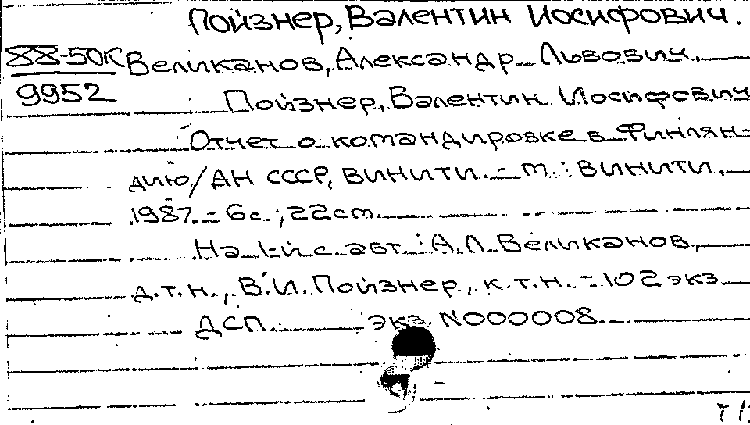 Пойзнер, Валентин Иосифович.
88-50К
9952
Великанов, Александр Львович.
Пойзнер, Валентин Иосифович
Отчет о командировке в Финлян-
дию/АН СССР, ВИНИТИ. - m.: ВИНИТИ,
1987. - 6с.; 22cm.
На 1-й с. авт.: А.Л. Великанов,
д.т.н., В.И. Пойзнер, к.т.н. - 102 экз
ДСП экз N000008